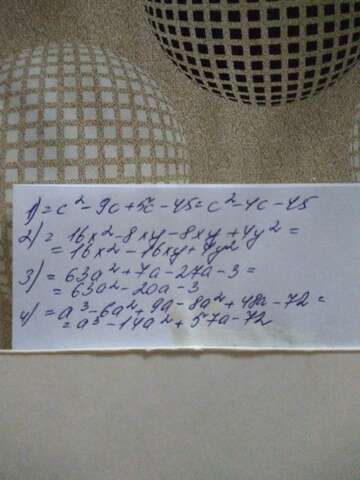 1) = c² - 9c + 5c - 45 = c² - 4c - 45
2) = 16x² - 8xy - 8xy + 4y² =
= 16x² - 16xy + 4y²
3) = 63a² + 7a - 27a - 3 =
= 63a² - 20a - 3
4) = a³ - 6a² + 9a - 8a² + 48a - 72 =
= a³ - 14a² + 57a - 72